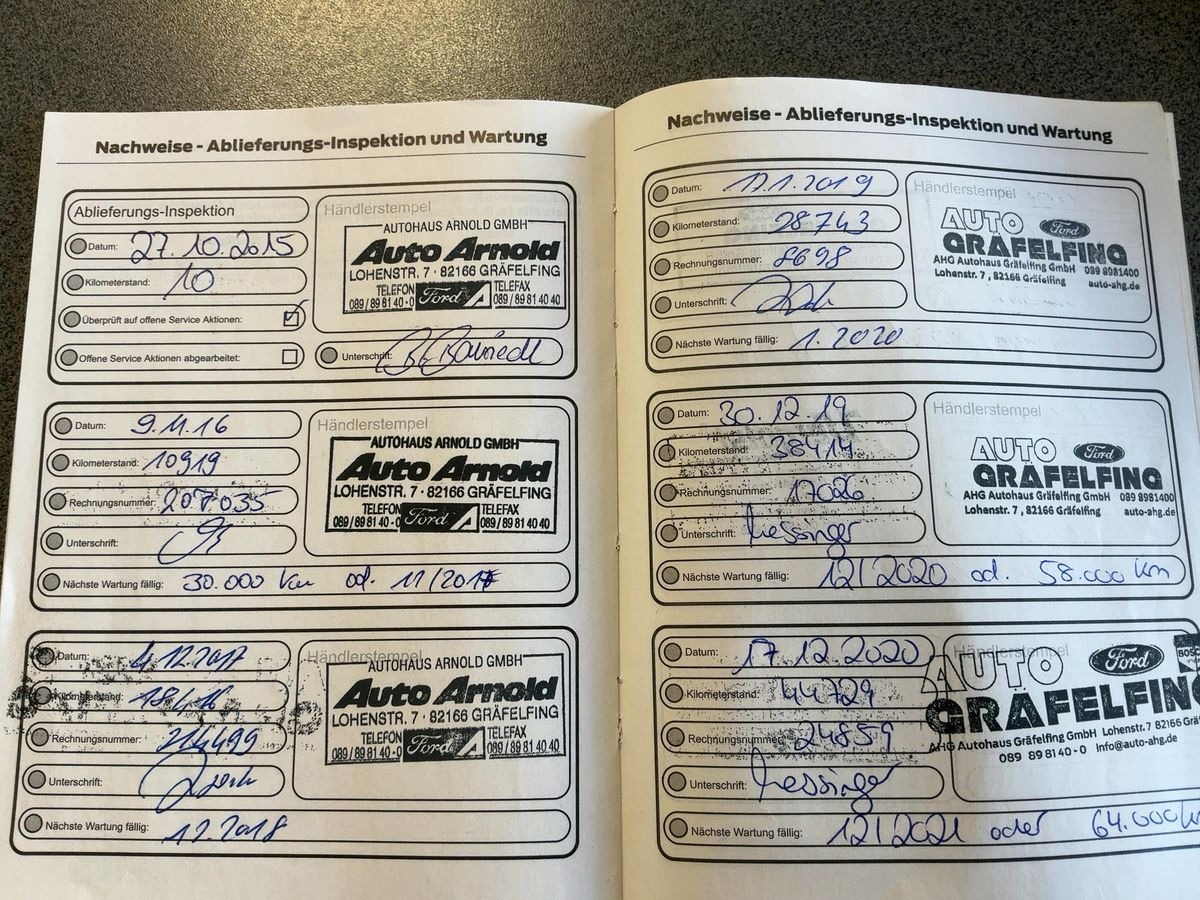 Nachweise - Ablieferungs-Inspektion und Wartung
Ablieferungs-Inspektion
Datum: 27.10.2015
Kilometerstand: 10
Überprüft auf offene Service Aktionen:
Offene Service Aktionen abgearbeitet:
Händlerstempel
AUTOHAUS ARNOLD GMBH
Auto Arnold
LOHENSTR. 7 · 82166 GRÄFELFING
TELEFON
089 / 89 81 40 - 0
Ford
TELEFAX
089 / 89 81 40 40
Unterschrift:
Datum: 9.11.16
Kilometerstand: 10919
Rechnungsnummer: 207035
Unterschrift:
Händlerstempel
AUTOHAUS ARNOLD GMBH
Auto Arnold
LOHENSTR. 7 · 82166 GRÄFELFING
TELEFON
089 / 89 81 40 - 0
Ford
TELEFAX
089 / 89 81 40 40
Nächste Wartung fällig: 30.000 km od. 11/2017
Datum: 4.12.2017
Kilometerstand: 19416
Rechnungsnummer: 214499
Unterschrift:
Händlerstempel
AUTOHAUS ARNOLD GMBH
Auto Arnold
LOHENSTR. 7 · 82166 GRÄFELFING
TELEFON
089 / 89 81 40 - 0
Ford
TELEFAX
089 / 89 81 40 40
Nächste Wartung fällig: 12.2018
Nachweise - Ablieferungs-Inspektion und Wartung
Datum: 17.1.2019
Kilometerstand: 28743
Rechnungsnummer: 8698
Unterschrift:
Händlerstempel
AUTO Ford
GRÄFELFING
AHG Autohaus Gräfelfing GmbH 089 8981400
Lohenstr. 7 , 82166 Gräfelfing auto-ahg.de
Nächste Wartung fällig: 1.2020
Datum: 30.12.19
Kilometerstand: 38414
Rechnungsnummer: 17026
Unterschrift: Messinger
Händlerstempel
AUTO Ford
GRÄFELFING
AHG Autohaus Gräfelfing GmbH 089 8981400
Lohenstr. 7 , 82166 Gräfelfing auto-ahg.de
Nächste Wartung fällig: 12/2020 od. 58.000 km
Datum: 17.12.2020
Kilometerstand: 44729
Rechnungsnummer: 24859
Unterschrift: Messinger
Händlerstempel
AUTO Ford
GRÄFELFING
AHG Autohaus Gräfelfing GmbH Lohenstr. 7 82166 Gräf
089 89 81 40 - 0 info@auto-ahg.de
Nächste Wartung fällig: 12/2021 oder 64.000 km